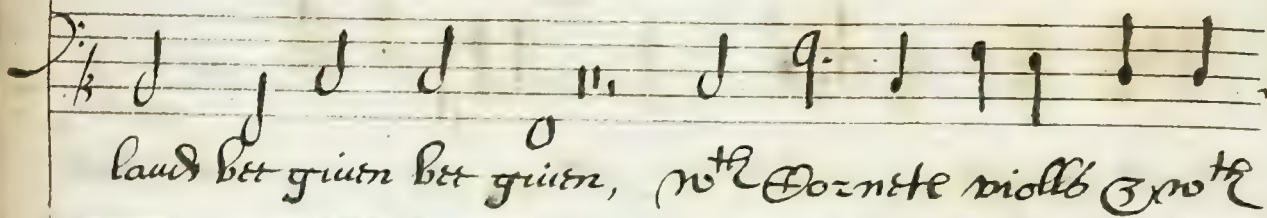 laud bee giuen bee giuen, wth Cornets violls & wth